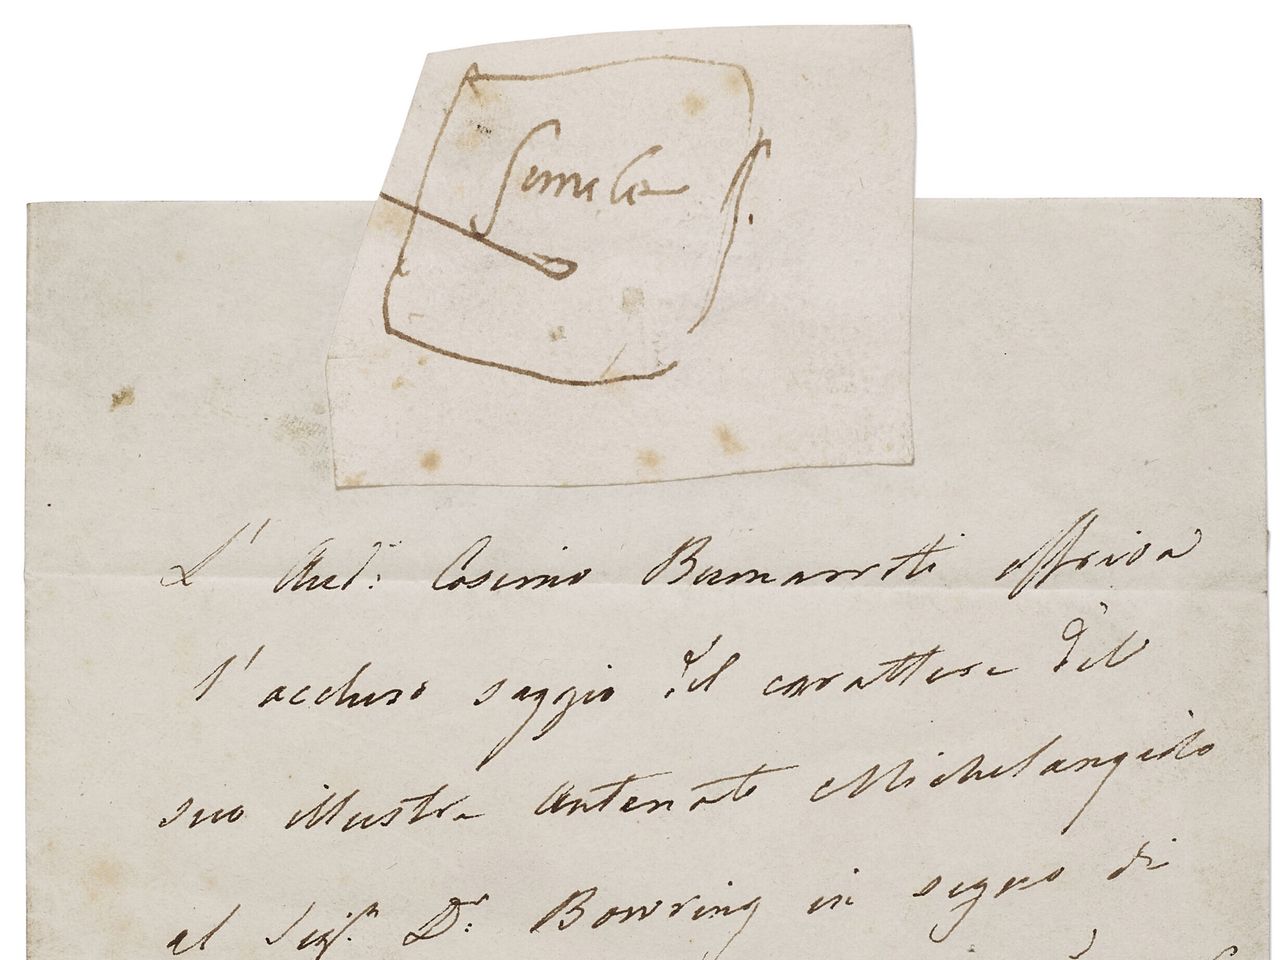 simile
L' Aud: Cosimo Buonarroti offriva
l' accluso saggio del carattere del
suo illustre Antenato Michelangiolo
al Sigr. Dr. Bowring in segno di